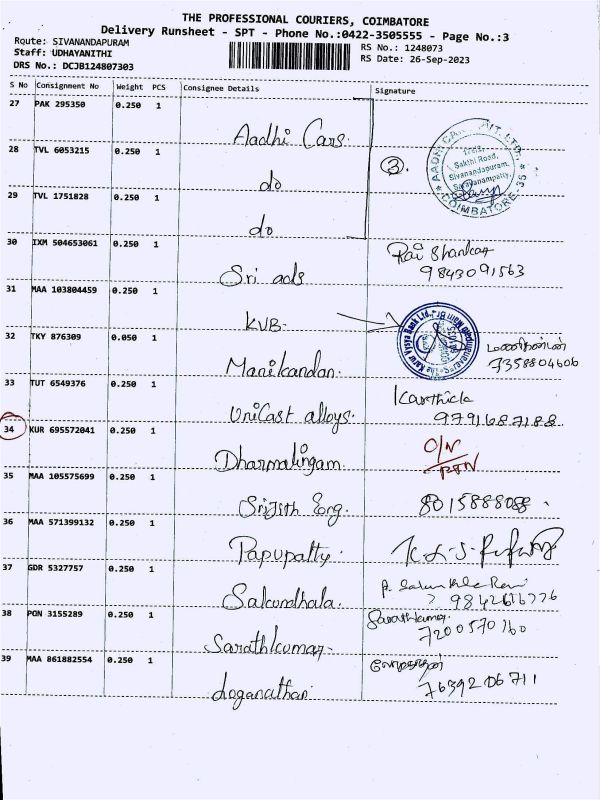 THE PROFESSIONAL COURIERS, COIMBATORE
Delivery Runsheet - SPT - Phone No.:0422-3505555 - Page No.:3
Route: SIVANANDAPURAM
Staff: UDHAYANITHI
DRS No.: DCJB124807303
RS No.: 1248073
RS Date: 26-Sep-2023
S No Consignment No Weight PCS Consignee Details Signature
27 PAK 295350 0.250 1 Aadhi Cars.
28 TVL 6053215 0.250 1 do
3.
AADHI CA PVT. LTD.,
Sakthi Road,
Sivanandapuram,
Saravanampatty,
COIMBATORE-35
29 TVL 1751828 0.250 1 do
30 IXM 504653061 0.250 1 Sri ads Ravi Shankar
9843091563
31 MAA 103804459 0.250 1 KVB-
The Karur Vysya Bank Ltd.,
32 TKY 876309 0.050 1 Manikandan. மணிகண்டன்
7358804606
33 TUT 6549376 0.250 1 UniCast alloys. Karthick
9791687188
34 KUR 695572041 0.250 1 Dharmalingam O/N
RTN
35 MAA 105575699 0.250 1 Srijith Eng. 8015888088
36 MAA 571399132 0.250 1 Papupatty.
37 GDR 5327757 0.250 1 Sakundhala.
38 PON 3155289 0.250 1 Sarathkumar Sarathkumar
7200570760
39 MAA 861882554 0.250 1 loganathan லோகநாதன்
7639206711